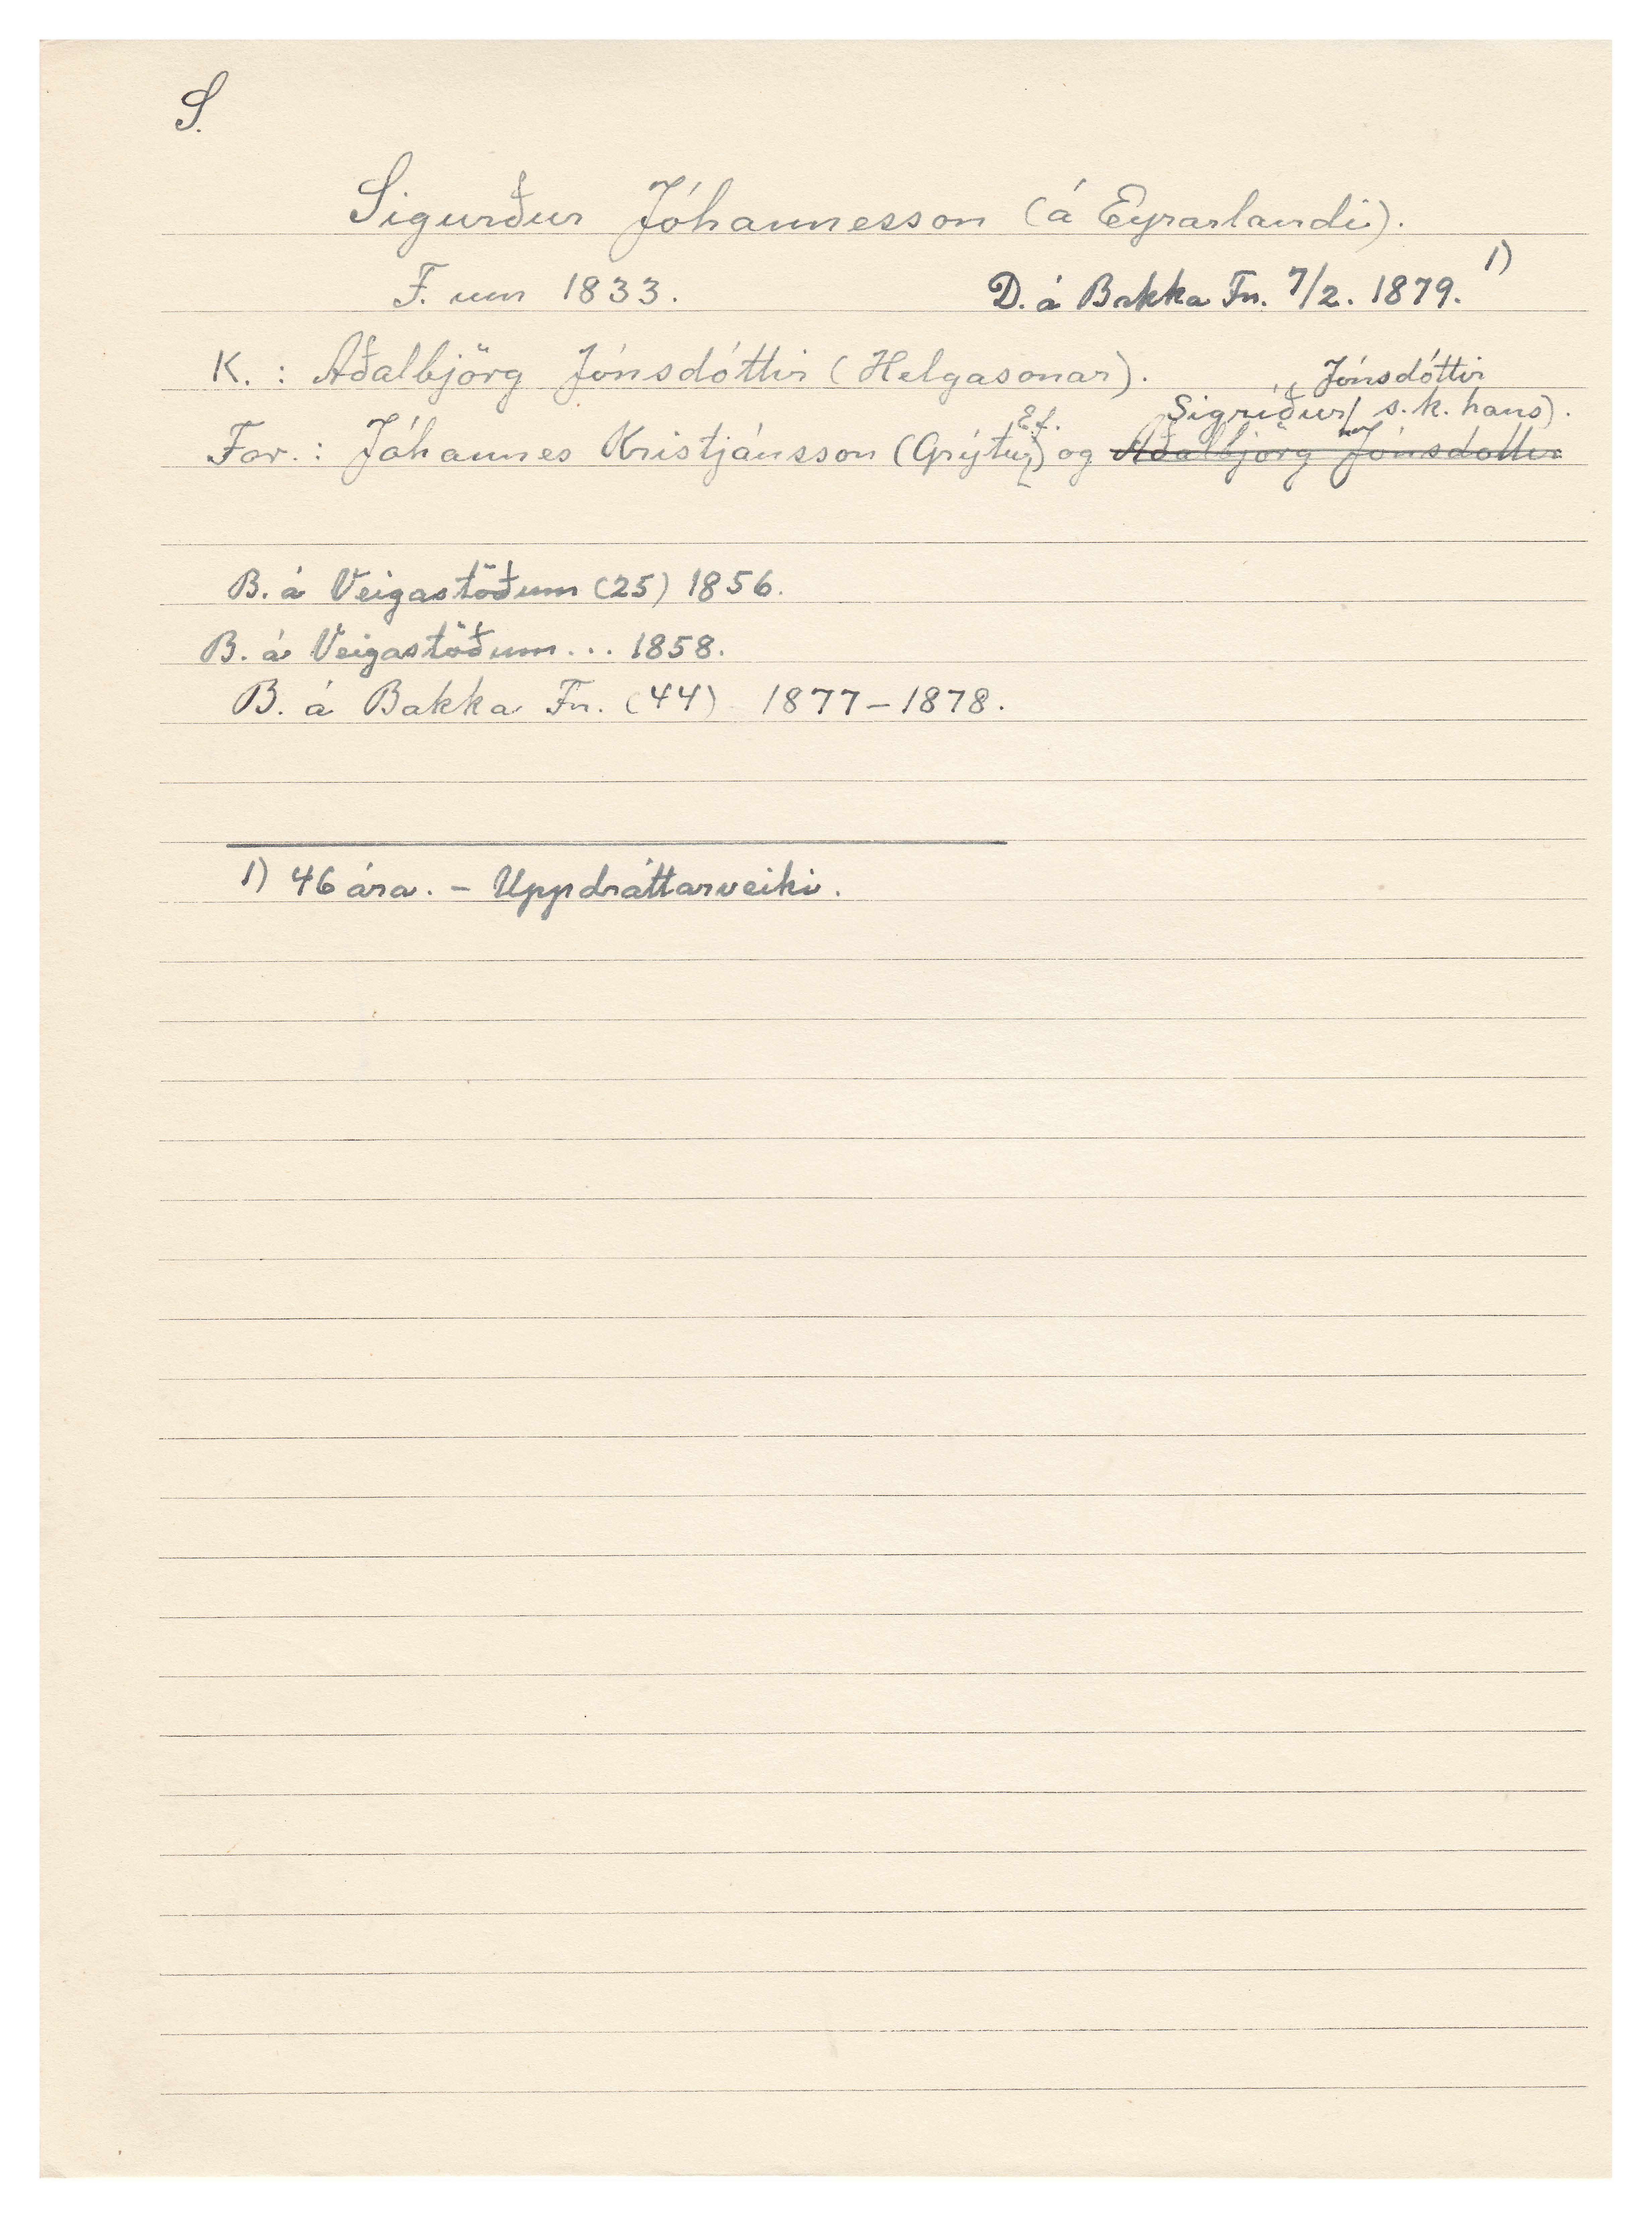 S.
Sigurður Jóhannesson (á Eyrarlandi).
F. um 1833. D. á Bakka Fn. 7/2. 1879. 1)
K. : Aðalbjörg Jónsdóttir (Helgasonar).
Jónsdóttir
Sigríður ( s.k. hans).
For. : Jóhannes Kristjánsson (Grýtu, Ef.) og Aðalbjörg Jónsdóttir
B. á Veigastöðum (25) 1856.
B. á Veigastöðum ... 1858.
B. á Bakka Fn. (44) 1877-1878.
1) 46 ára. - Uppdráttarveiki.